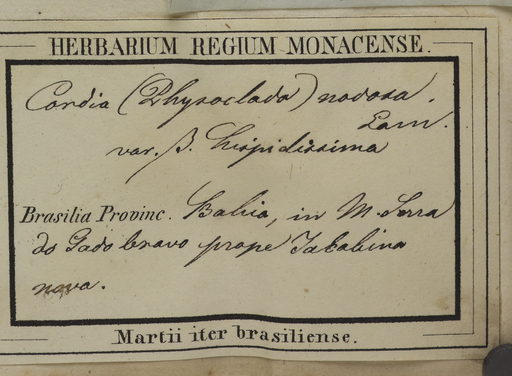 HERBARIUM REGIUM MONACENSE.
Cordia (Physoclada) nodosa.
Lam.
var. β. hispidissima
Brasilia Provinc. Bahia, in M. Serra
do Gado bravo prope Jakabina
nova.
Martii iter brasiliense.